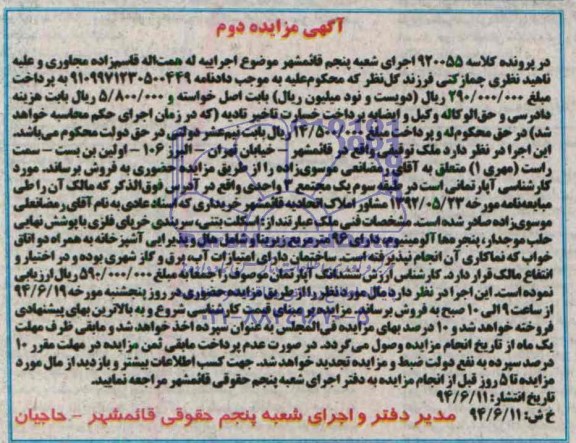 آگهی مزایده دوم
در پرونده کلاسه ۹۲۰۰۵۵ اجرای شعبه پنجم قائمشهر موضوع اجراییه له همت‌اله قاسم‌زاده مجاوری و علیه
ناهید نظری چمازکتی فرزند گل‌نظر که محکوم‌علیه به موجب دادنامه ۹۱۰۹۹۷۱۲۳۰۵۰۰۴۴۹ به پرداخت
مبلغ ۲۹۰/۰۰۰/۰۰۰ ریال (دویست و نود میلیون ریال) بابت اصل خواسته و ۵/۸۰۰/۰۰۰ ریال بابت هزینه
دادرسی و حق‌الوکاله وکیل و ایضاً پرداخت خسارت تاخیر تادیه (که در زمان اجرای حکم محاسبه خواهد
شد) در حق محکوم‌له و پرداخت مبلغ ریال بابت نیم‌عشر دولتی در حق دولت محکوم می‌باشد.
این اجرا در نظر دارد ملک توقیفی واقع در قائمشهر – خیابان تهران – البرز ۱۰۶ – اولین بن بست – سمت
راست (مهری ۱) متعلق به آقای رمضانعی موسوی‌زاده را از طریق مزایده حضوری به فروش برساند. مورد
کارشناسی آپارتمانی است در طبقه سوم یک مجتمع ۳ واحدی واقع در آدرس فوق‌الذکر که مالک آن را طی
مبایعه‌نامه مورخه ۱۳۹۲/۰۵/۲۳ مشاور املاک اتحادیه قائمشهر خریداری که اسناد عادی به نام آقای رمضانعلی
موسوی‌زاده صادر شده است. مشخصات فنی ملک عبارتند از: اسکلت بتنی، سربندی خرپای فلزی با پوشش نهایی
حلب موجدار، پنجره‌ها آلومینیوم، دارای ۹۶ مترمربع زیربنا و شامل هال و پذیرایی آشپزخانه به همراه دو اتاق
خواب که نماکاری آن انجام نپذیرفته است. ساختمان دارای امتیازات آب، برق و گاز شهری بوده و در اختیار و
انتفاع مالک قرار دارد. کارشناس ارزش ششدانگ آپارتمان موصوف را به مبلغ ۵۹۰/۰۰۰/۰۰۰ ریال ارزیابی
نموده است. این اجرا در نظر دارد مال مورد نظر را از طریق مزایده حضوری در روز پنجشنبه مورخه ۹۴/۶/۱۹
از ساعت ۹ الی ۱۰ صبح به فروش برساند. مزایده بر مبنای قیمت کارشناسی شروع و به بالاترین بهای پیشنهادی
فروخته خواهد شد و ۱۰ درصد بهای مزایده فی‌المجلس به عنوان سپرده اخذ خواهد شد و مابقی ظرف مهلت
یک ماه از تاریخ انجام مزایده وصول می‌گردد. در صورت عدم پرداخت مابقی ثمن مزایده در مهلت مقرر ۱۰
درصد سپرده به نفع دولت ضبط و مزایده تجدید خواهد شد. جهت کسب اطلاعات بیشتر و بازدید از مال مورد
مزایده تا ۵ روز قبل از انجام مزایده به دفتر اجرای شعبه پنجم حقوقی قائمشهر مراجعه نمایید.
تاریخ انتشار: ۹۴/۶/۱۱
خ ش: ۹۴/۶/۱۱ مدیر دفتر و اجرای شعبه پنجم حقوقی قائمشهر – حاجیان